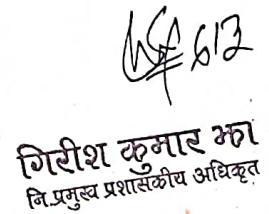 ६१२
गिरीश कुमार झा
नि.प्रमुख प्रशासकीय अधिकृत